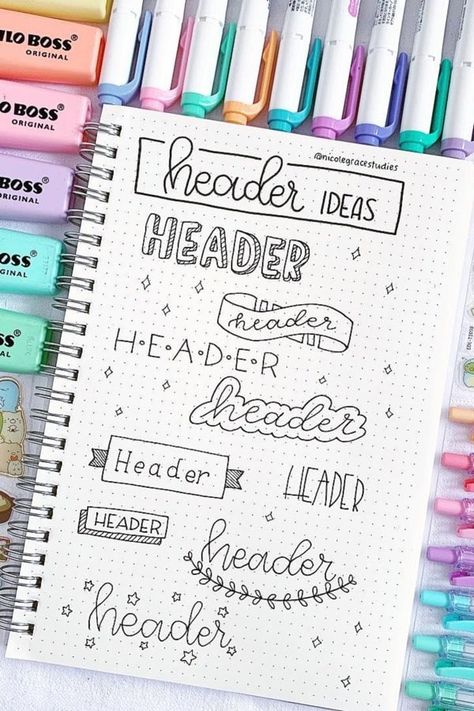 ILO BOSS®
ORIGINAL
BOSS®
ORIGINAL
BOSS®
ORIGINAL
OSS®
ORIGINAL
OSS®
GINAL
@nicolegracestudies
header IDEAS
HEADER
header
H·E·A·D·E·R
header
Header
HEADER
HEADER
header
header